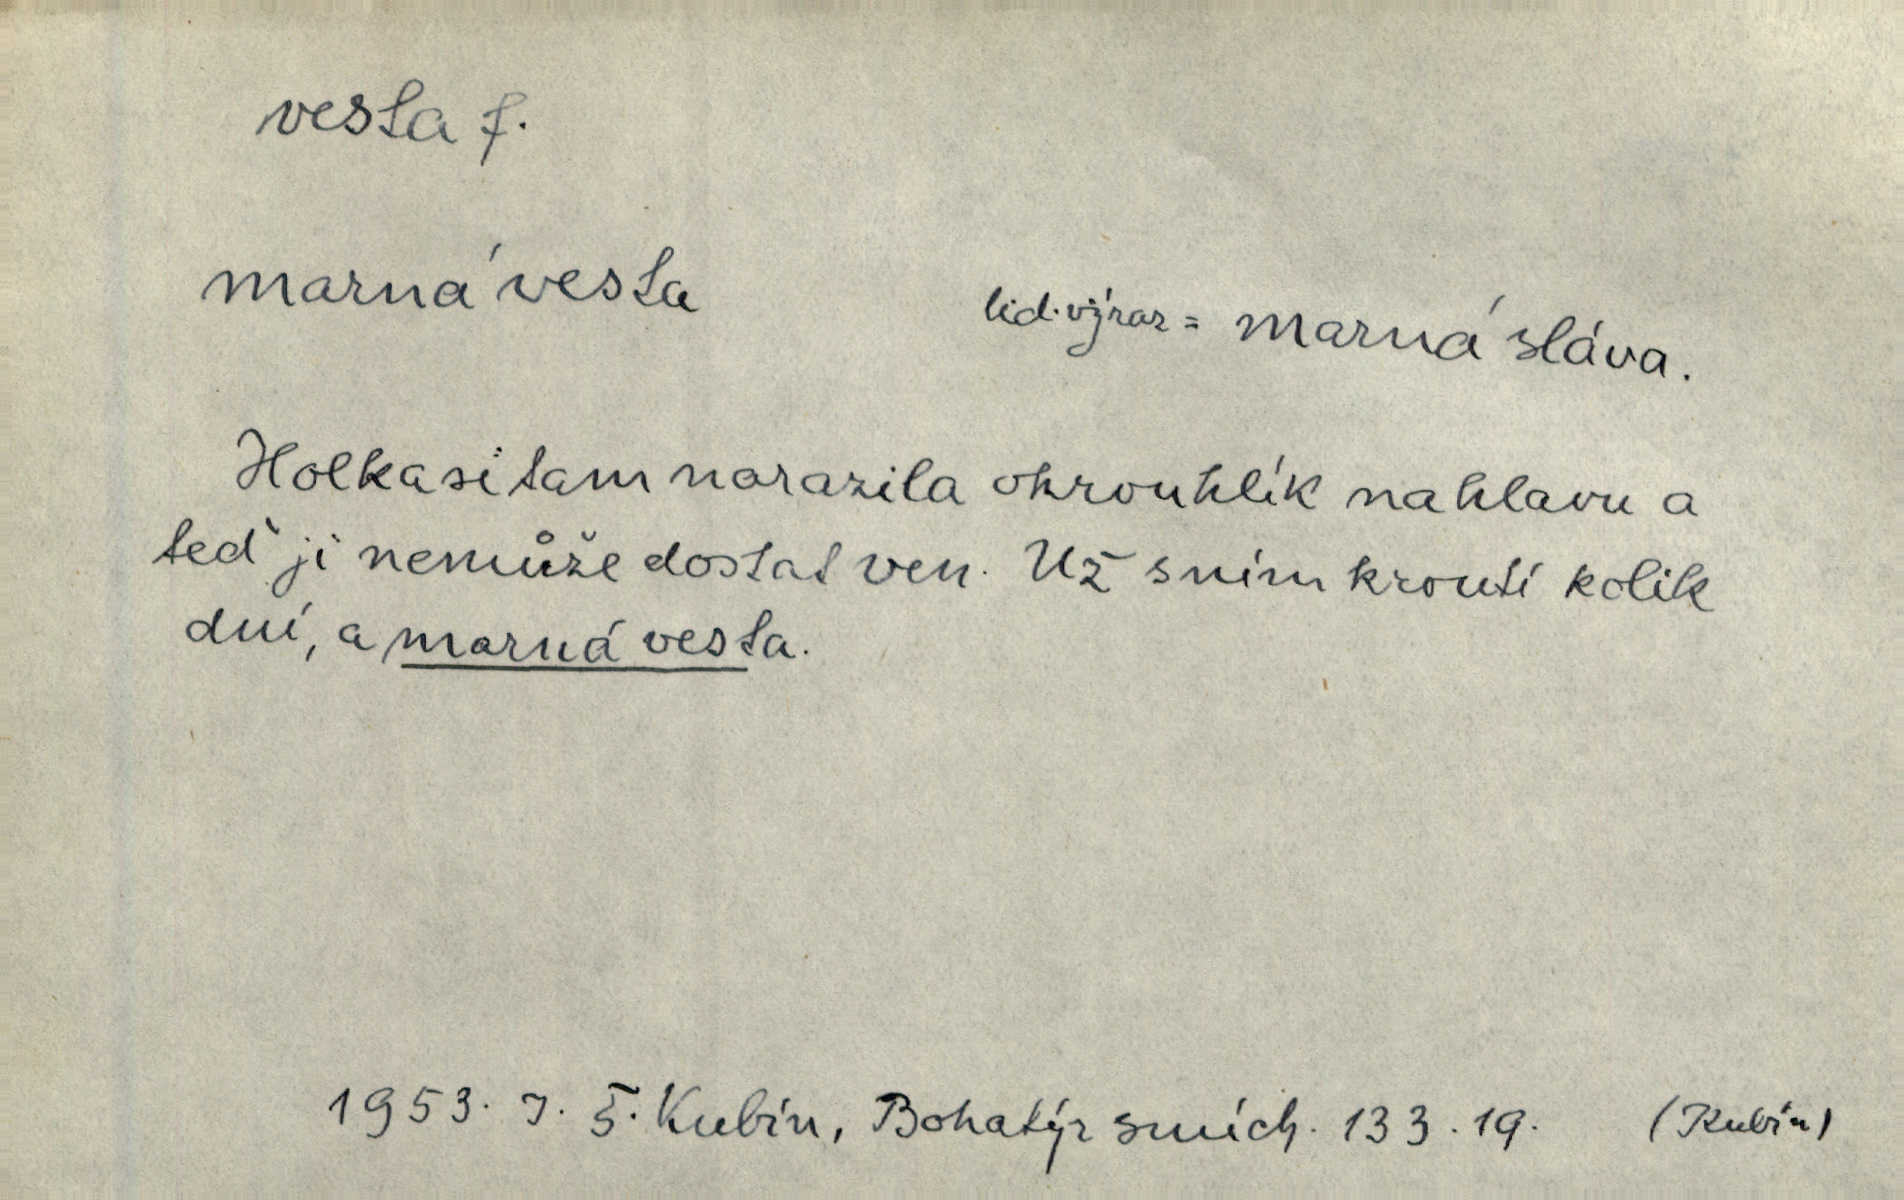 vesta f.
marná vesta
lid. výraz = marná sláva.
Holka si tam narazila okrouhlík na hlavu a
teď ji nemůže dostat ven. Už s ním kroutí kolik
dní, a marná vesta.
1953. J. Š. Kubín, Bohatýr smích. 133. 19. (Kubín)